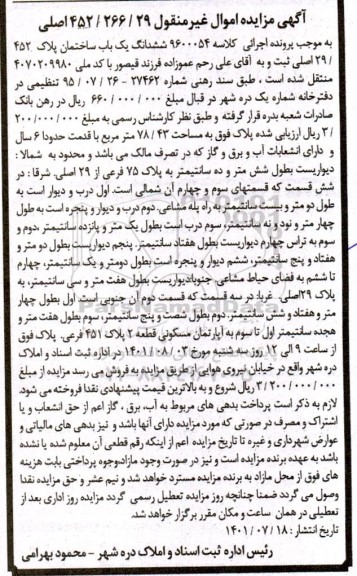 آگهی مزایده اموال غیرمنقول ۲۹ / ۲۶۶ / ۴۵۲ اصلی
به موجب پرونده اجرائی کلاسه ۹۶۰۰۰۵۴ ششدانگ یک باب ساختمان پلاک ۴۵۲
/ ۲۹ اصلی ثبت و به آقای علی رحم عموزاده فرزند قیصور با کد ملی ۴۰۷۰۲۰۹۹۸۰
منتقل شده است ، طبق سند رهنی شماره ۲۷۴۶۲ - ۲۶ / ۰۷ / ۹۵ تنظیمی در
دفترخانه شماره یک دره شهر در قبال مبلغ ۰۰۰ / ۰۰۰ / ۶۶۰ ریال در رهن بانک
صادرات شعبه بدره قرار گرفته و طبق نظر کارشناس رسمی به مبلغ ۰۰۰ / ۲۰۰/۰۰۰
/ ۳ ریال ارزیابی شده پلاک فوق به مساحت ۴۳ / ۷۸ متر مربع با قدمت حدودا ۶ سال
و دارای انشعابات آب و برق و گاز که در تصرف مالک می باشد و محدود به شمالا :
دیواریست بطول شش متر و ده سانتیمتر به پلاک ۷۵ فرعی از ۲۹ اصلی. شرقا : در
شش قسمت که قسمتهای سوم و چهارم آن شمالی است. اول درب و دیوار است به
طول دو متر و بیست سانتیمتر به راه پله مشاعی. دوم درب و دیوار و پنجره است به طول
چهار متر و نود و نه سانتیمتر، سوم درب است بطول یک متر و پانزده سانتیمتر ،دوم و
سوم به تراس چهارم دیواریست بطول هفتاد سانتیمتر. پنجم دیواریست بطول دو متر و
هفتاد و پنج سانتیمتر، ششم دیوار و پنجره است بطول دومتر و یک سانتیمتر، چهارم
تا ششم به فضای حیاط مشاعی. جنوبا:دیواریست بطول هفت متر و سی سانتیمتر، به
پلاک ۲۹اصلی. غربا: در سه قسمت که قسمت دوم آن جنوبی است. اول بطول چهار
متر و هفتاد و شش سانتیمتر، دوم بطول شصت و پنج سانتیمتر، سوم بطول هفت متر و
هجده سانتیمتر اول تا سوم به آپارتمان مسکونی قطعه ۲ پلاک ۴۵۱ فرعی. پلاک فوق
از ساعت ۹ الی ۱۲ روز سه شنبه مورخ ۰۳ / ۰۸ / ۱۴۰۱ در اداره ثبت اسناد و املاک
دره شهر واقع در خیابان نیروی هوایی از طریق مزایده به فروش می رسد مزایده از مبلغ
۲۰۰/۰۰۰/۰۰۰ / ۳ ریال شروع و به بالاترین قیمت پیشنهادی نقدا فروخته می شود.
لازم به ذکر است پرداخت بدهی های مربوط به آب، برق ، گاز اعم از حق انشعاب و یا
اشتراک و مصرف در صورتی که مورد مزایده دارای آنها باشد و نیز بدهی های مالیاتی و
عوارض شهرداری و غیره تا تاریخ مزایده اعم از اینکه رقم قطعی آن معلوم شده یا نشده
باشد به عهده برنده مزایده است و نیز در صورت وجود مازاد،وجوه پرداختی بابت هزینه
های فوق از محل مازاد به برنده مزایده مسترد خواهد شد و نیم عشر و حق مزایده نقدا
وصول می گردد ضمنا چنانچه روز مزایده تعطیل رسمی گردد مزایده روز اداری بعد از
تعطیلی در همان ساعت و مکان مقرر برگزار خواهد شد.
تاریخ انتشار : ۱۸ / ۰۷ / ۱۴۰۱
رئیس اداره ثبت اسناد و املاک دره شهر - محمود بهرامی